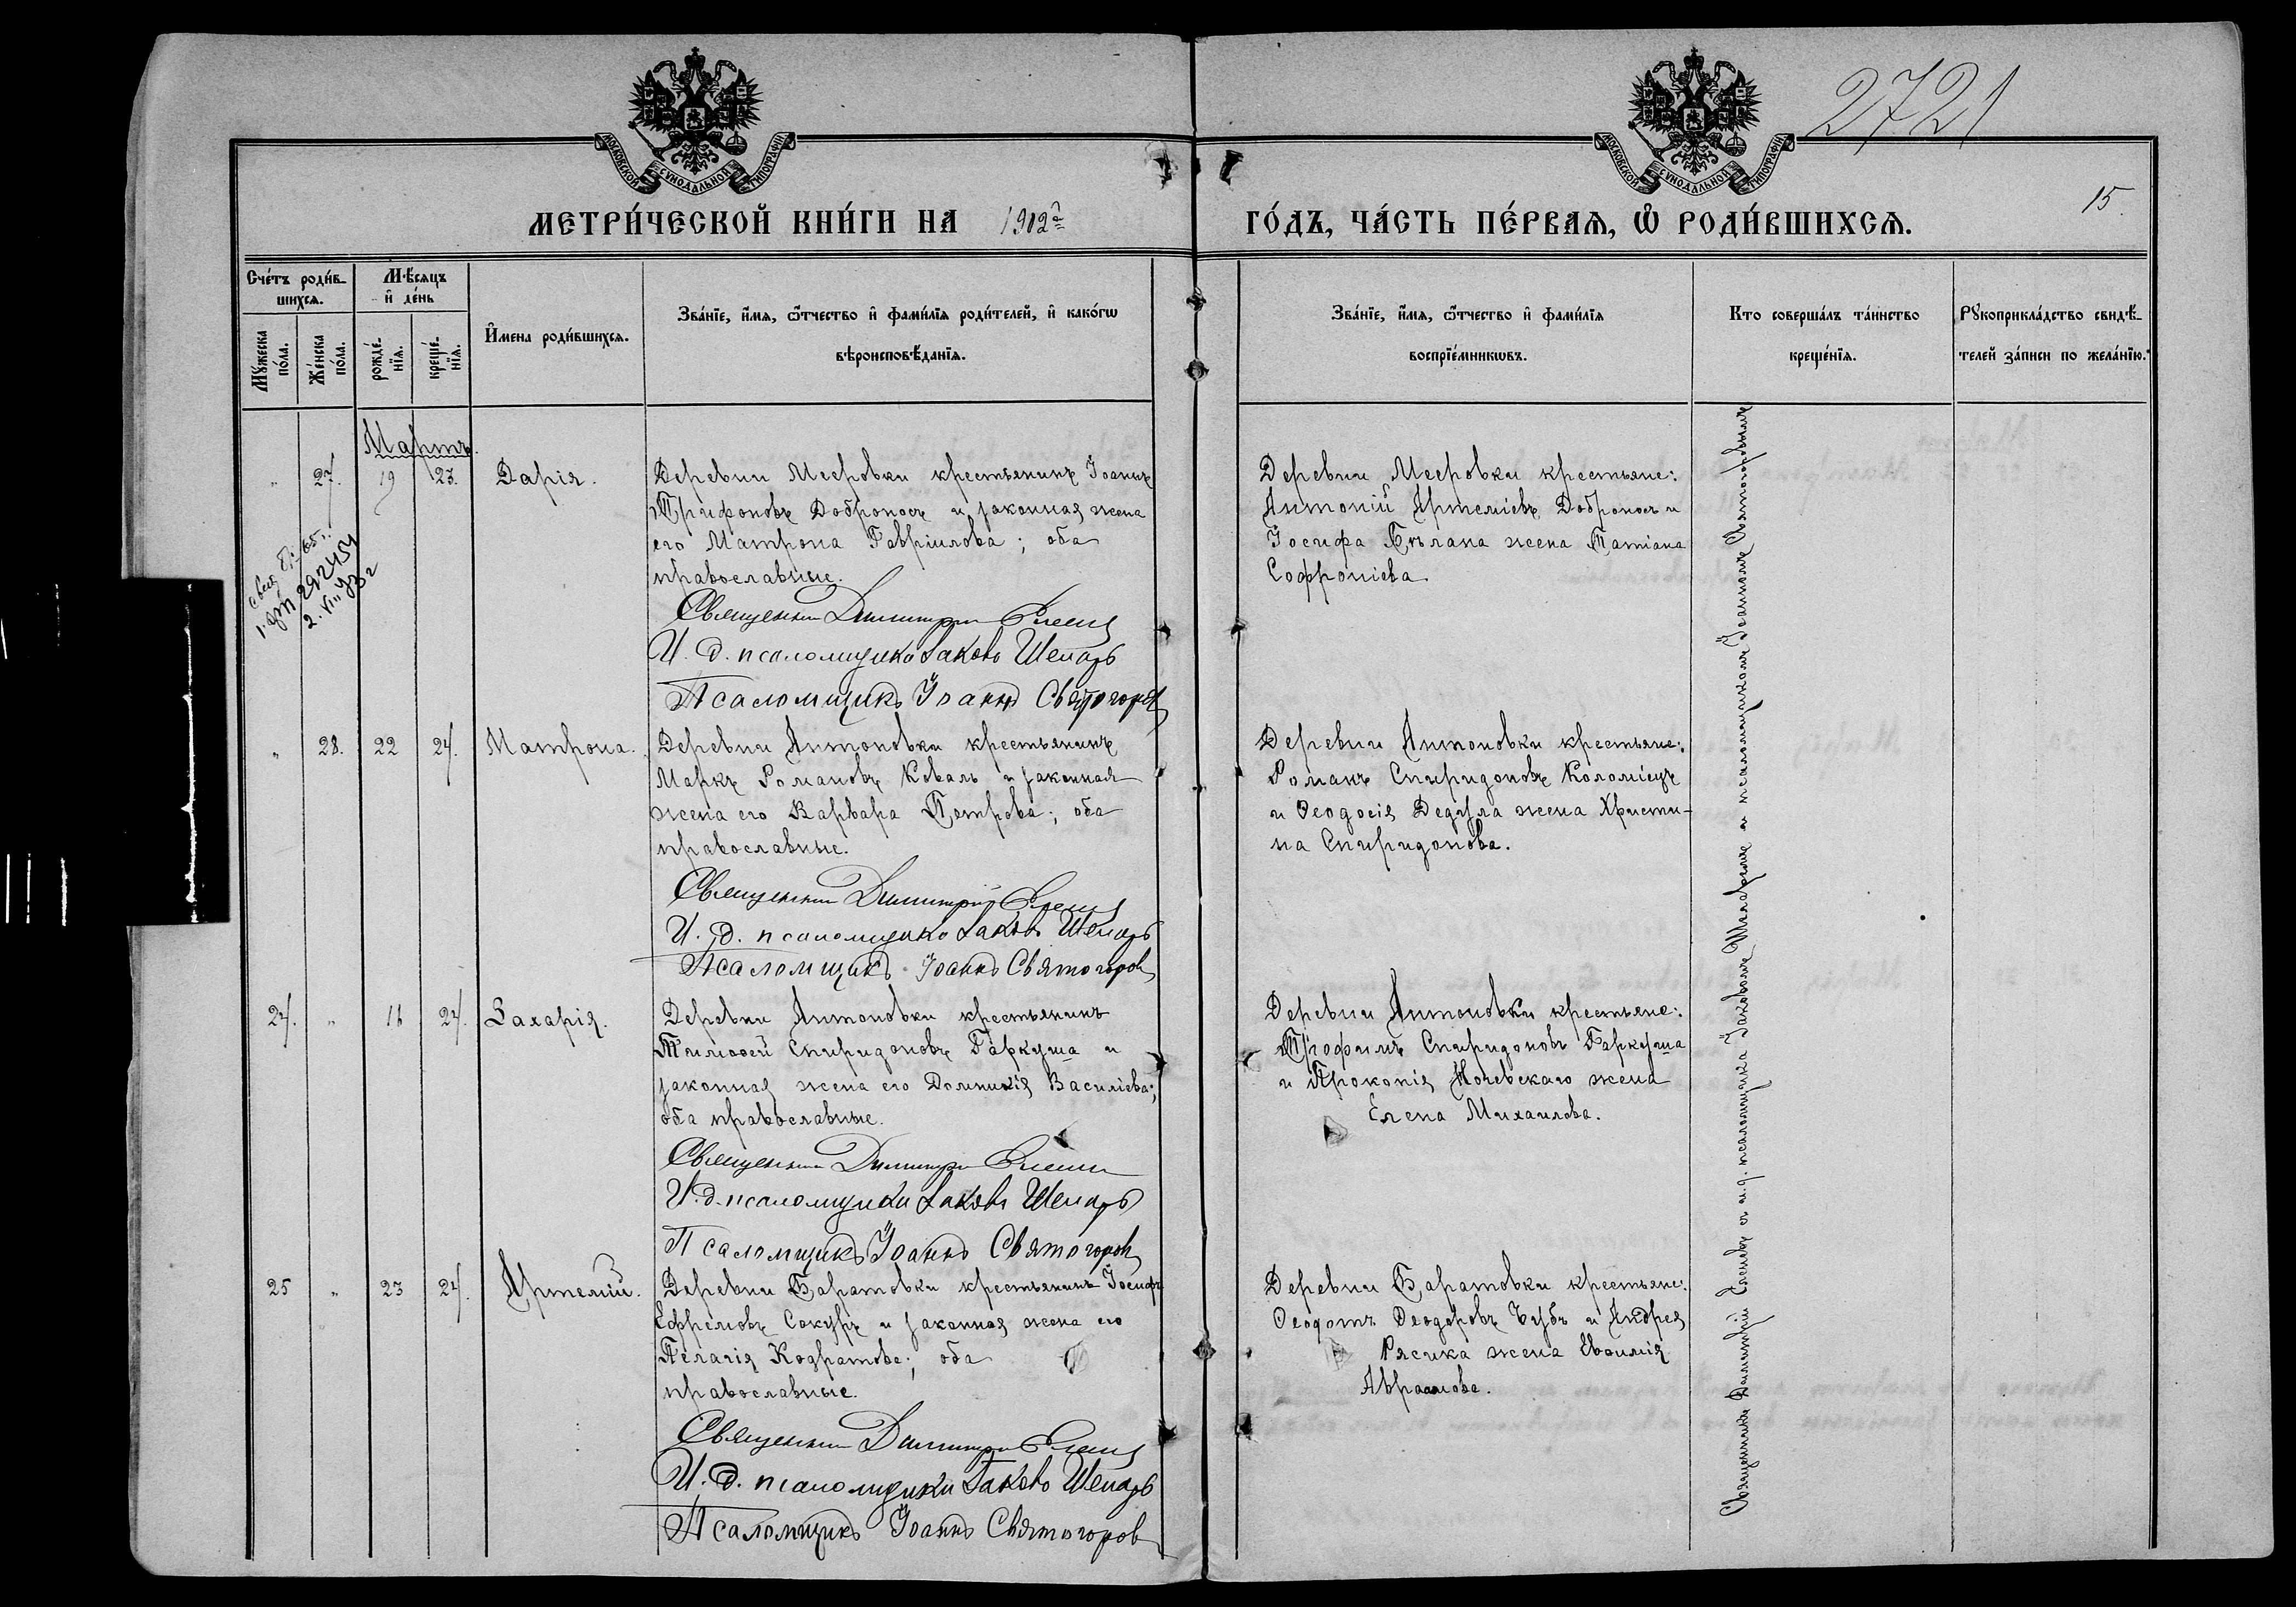 2721
15.
МОСКОВСКОЙ СѴНОДАЛЬНОЙ ТИПОГРАФІИ
МОСКОВСКОЙ СѴНОДАЛЬНОЙ ТИПОГРАФІИ
МЕТРИ́ЧЕСКОЙ КНИ́ГИ НА 1912 ГО́ДЪ, ЧА́СТЬ ПЕ́РВАѦ, Ѡ҆ РОДИ́ВШИХСѦ.
Сче́тъ роди́в-
шихсѧ.
Мꙋ́жеска по́ла.
Же́нска по́ла.
Мѣ́сѧцъ
и҆ де́нь
рожде́-
нїѧ.
креще́-
нїѧ.
И҆мена роди́вшихсѧ.
Зва́нїе, и҆́мѧ, ѻ҆́тчество и҆ фами́лїѧ роди́телей, и҆ како́гѡ
вѣроисповѣ́данїѧ.
Зва́нїе, и҆́мѧ, ѻ҆́тчество и҆ фами́лїѧ
воспрїе́мникѡвъ.
Кто соверша́лъ та́инство
креще́нїѧ.
Рꙋкоприкла́дство свидѣ́-
телей за́писи по жела́нїю.
Мартъ.
" 27. 19 23. Дарія.
Деревни Мееровки крестьянинъ Іоаннъ
Трифоновъ Доброносъ и законная жена
его Матрона Гавріилова; оба
православные.
Священникъ Димитрій
И. д. псаломщика Іаковъ Шепарь
Псаломщикъ Іоаннъ Святогоровъ
Деревни Мееровки крестьяне:
Антоній Артеміевъ Доброносъ и
Іосифа Бѣлана жена Татіана
Софроніева
292454
" 28. 22 24. Матрона.
Деревни Антоновки крестьянинъ
Маркъ Романовъ Коваль и законная
жена его Варвара Петрова; оба
православные.
Священникъ Димитрій
И. д. псаломщика Іаковъ Шепарь
Псаломщикъ Іоаннъ Святогоровъ
Деревни Антоновки крестьяне:
Романъ Спиридоновъ Коломіецъ
и Ѳеодосія Дедула жена Христи-
на Спиридонова.
24. " 16 24. Захарія.
Деревни Антоновки крестьянинъ
Тимоѳей Спиридоновъ Гаркуша и
законная жена его Домникія Василіева;
оба православные.
Священникъ Димитрій
И. д. псаломщика Іаковъ Шепарь
Псаломщикъ Іоаннъ Святогоровъ
Деревни Антоновки крестьяне:
Трофимъ Спиридоновъ Гаркуша
и Прокопія жена
Елена Михаилова.
25 " 23 24. Артемій.
Деревни Баратовки крестьянинъ Іосифъ
Ефремовъ Сокуръ и законная жена его
Пелагія Кодратова; оба
православные.
Священникъ Димитрій
И. д. псаломщика Іаковъ Шепарь
Псаломщикъ Іоаннъ Святогоровъ
Деревни Баратовки крестьяне:
Ѳеодотъ Ѳеодоровъ Чубъ и Андрея
Рясика жена Евѳимія
Авраамова.
Священникъ Димитрій и и. д. псаломщика Іаковъ и псаломщикъ Іоаннъ